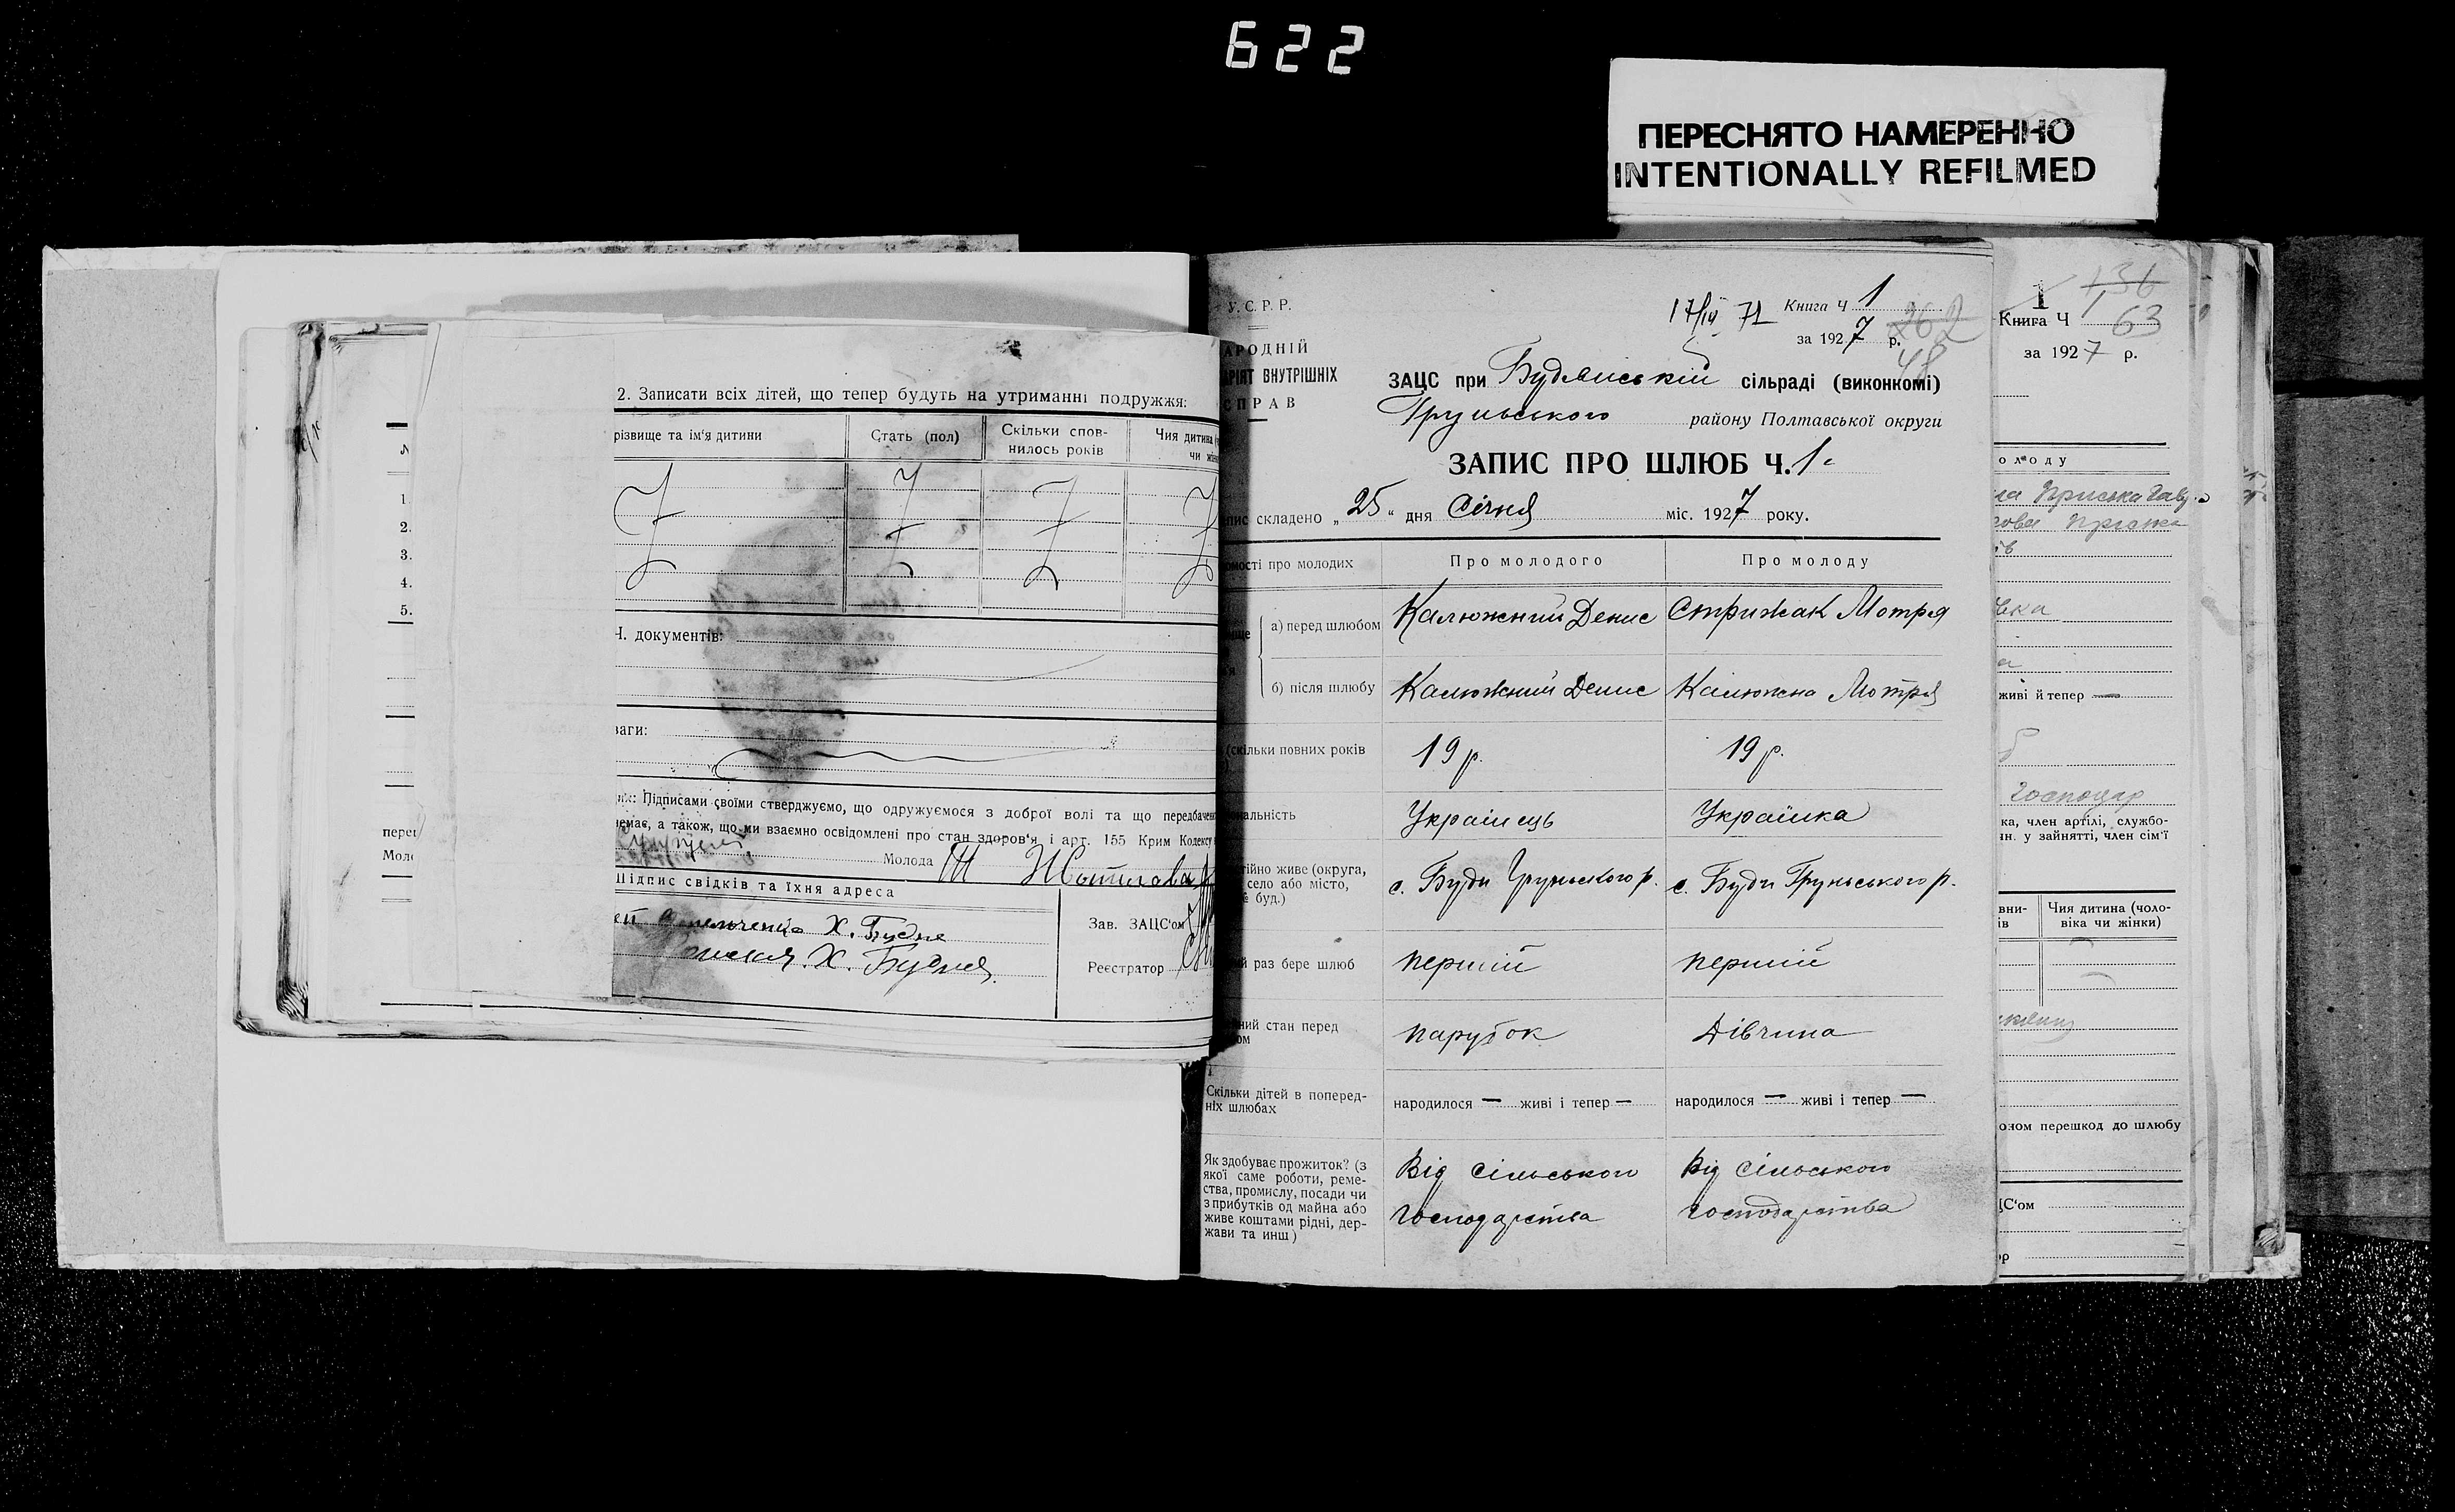 622
ПЕРЕСНЯТО НАМЕРЕННО
INTENTIONALLY REFILMED
2. Записати всіх дітей, що тепер будуть на утриманні подружжя:
різвище та ім'я дитини
Стать (пол)
Скільки спов-
нилось років
Чия дитина
чи жін
1.
2.
3.
4.
5.
Ч. документів:
ваги:
Підписами своїми стверджуємо, що одружуємося з доброї волі та що передбачен
немає, а також, що ми взаємно освідомлені про стан здоров'я і арт. 155 Крим Кодексу
Молода
Підпис свідків та їхня адреса
Х. Будне
Х. Будня.
Зав. ЗАЦС'ом
Реєстратор
У.С.Р.Р.
АРОДНІЙ
РІЯТ ВНУТРІШНІХ
СПРАВ
17/IV 71 Книга Ч 1
за 1927 р. 262
48
ЗАЦС при Будянській сільраді (виконкомі)
Груньського району Полтавської округи
ЗАПИС ПРО ШЛЮБ Ч. 1.
пис складено „25“ дня Січня міс. 1927 року.
омості про молодих
Про молодого
Про молоду
а) перед шлюбом Калюжний Денис Стрижак Мотря
б) після шлюбу Калюжний Денис Калюжна Мотря
(скільки повних років 19 р. 19 р.
ональність Українець Українка
тійно живе (округа,
село або місто,
№ буд.)
с. Буди Груньського р. с. Буди Груньського р.
й раз бере шлюб перший перший
ний стан перед
ом
парубок Дівчина
Скільки дітей в поперед-
ніх шлюбах
народилося — живі і тепер — народилося — живі і тепер —
Як здобуває прожиток? (з
якої саме роботи, реме-
ства, промислу, посади чи
з прибутків од майна або
живе коштами рідні, дер-
жави та инш)
Від сільського
господарства
Від сільського
господарства
1 136
Книга Ч 1
63
за 1927 р.
олоду
Приська Гавр.
живі й тепер —
господар
ка, член артілі, службо-
ин. у зайнятті, член сім'ї
вни-
ів
Чия дитина (чоло-
віка чи жінки)
оном перешкод до шлюбу
ЦС'ом
ор